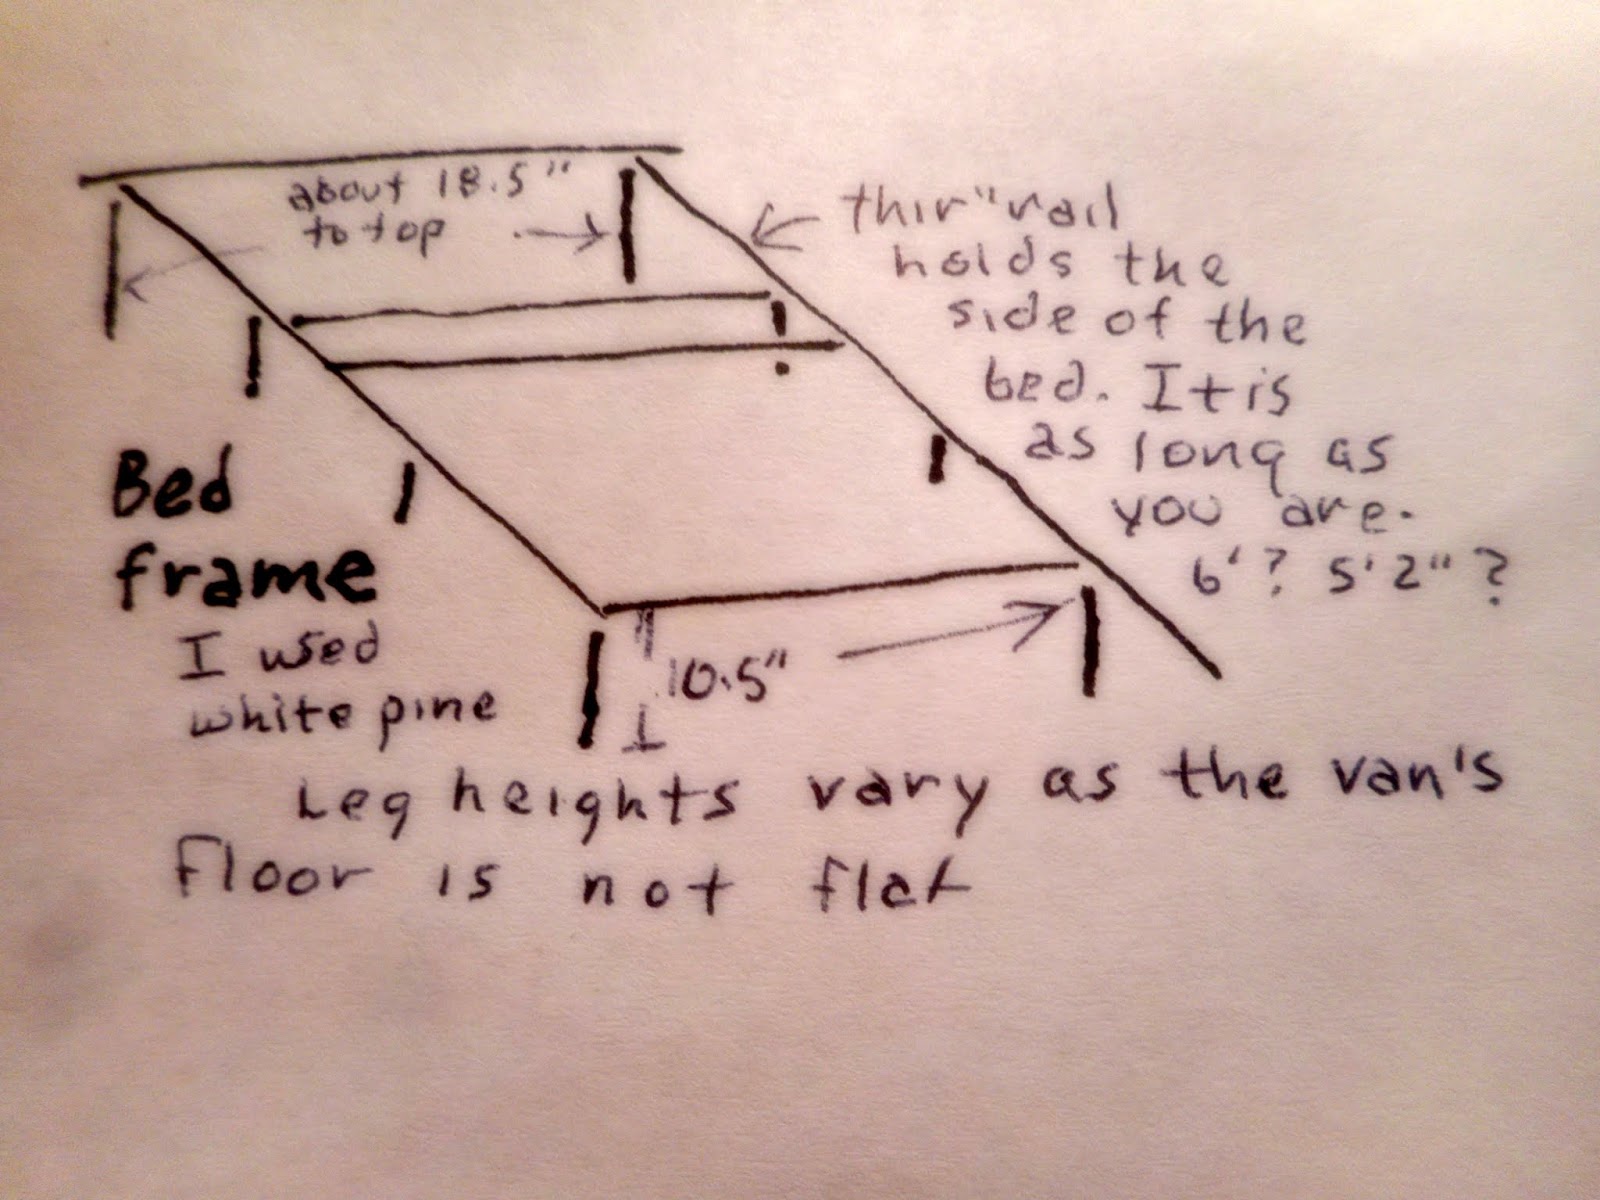 about 18.5"
to top
thin "rail
holds the
side of the
bed. It is
as long as
you are.
6'? 5'2"?
Bed
frame
I used
white pine
10.5"
Leg heights vary as the van's
floor is not flat